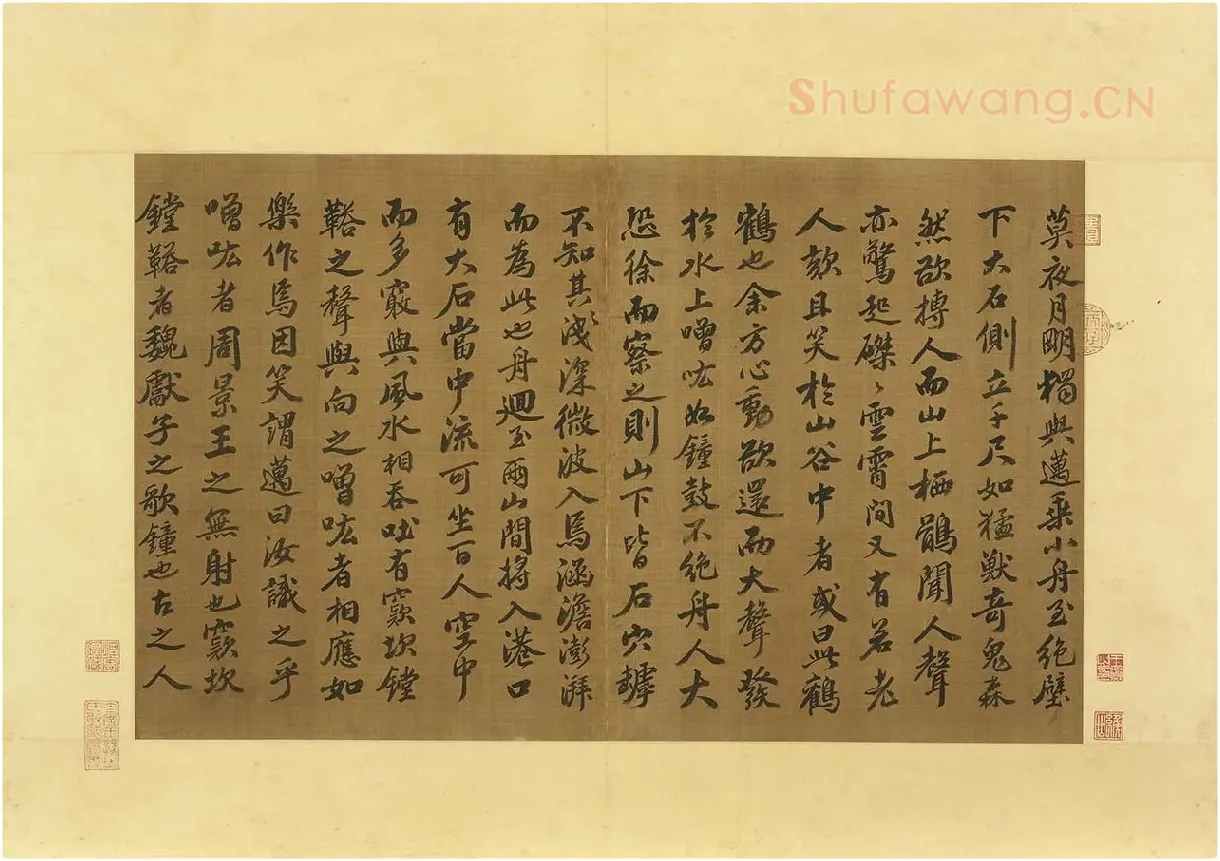 Shufawang.CN
莫夜月明獨與邁乗小舟至絶壁
下大石側立千尺如猛獸奇鬼森
然欲搏人而山上栖鶻聞人聲
亦驚起磔〻雲霄間又有若老
人欬且笑於山谷中者或曰此鸛
鶴也余方心動欲還而大聲發
於水上噌吰如鐘鼓不絶舟人大
恐徐而察之則山下皆石穴罅
不知其淺深微波入焉涵澹澎湃
而為此也舟迴至兩山間將入港口
有大石當中流可坐百人空中
而多竅與風水相吞吐有窾坎鏜
鞳之聲與向之噌吰者相應如
樂作焉因笑謂邁曰汝識之乎
噌吰者周景王之無射也窾坎
鏜鞳者魏獻子之歌鐘也古之人